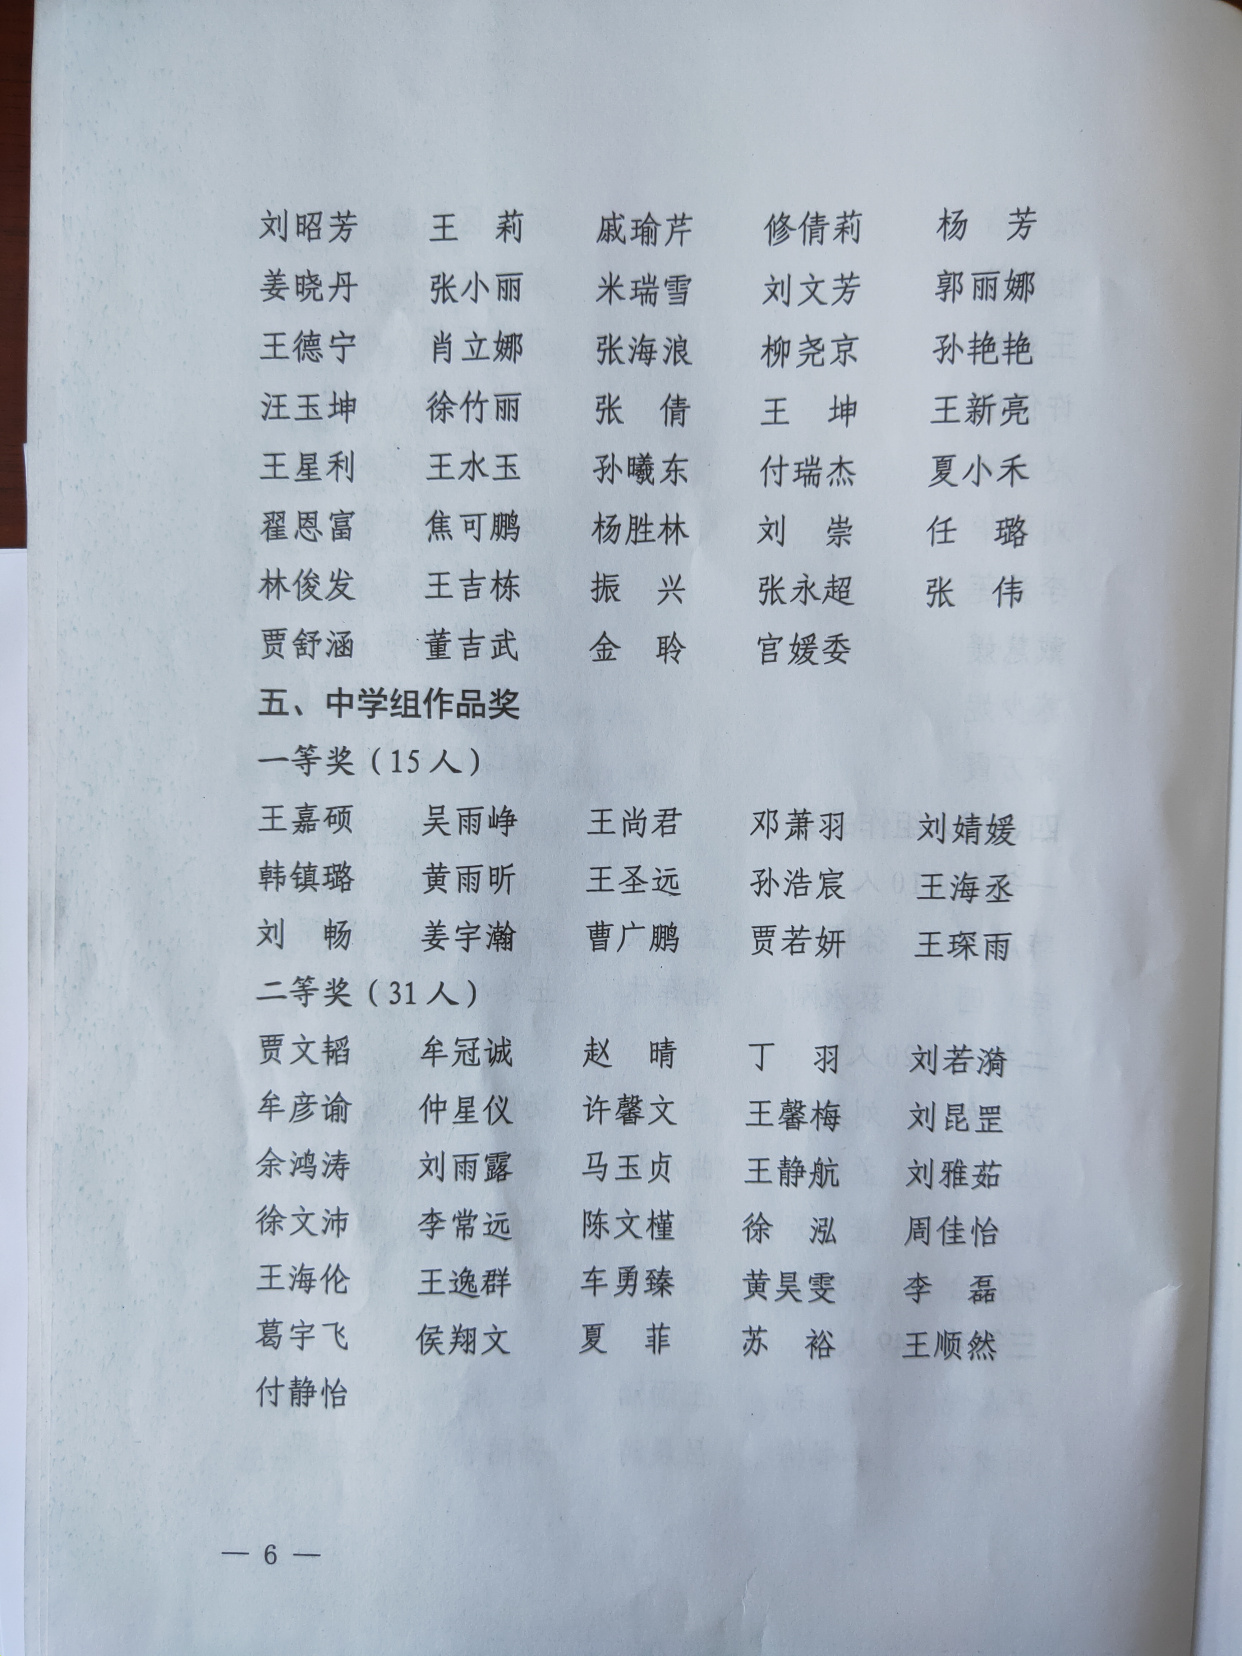 刘昭芳 王 莉 戚瑜芹 修倩莉 杨 芳
姜晓丹 张小丽 米瑞雪 刘文芳 郭丽娜
王德宁 肖立娜 张海浪 柳尧京 孙艳艳
汪玉坤 徐竹丽 张 倩 王 坤 王新亮
王星利 王水玉 孙曦东 付瑞杰 夏小禾
翟恩富 焦可鹏 杨胜林 刘 崇 任 璐
林俊发 王吉栋 振 兴 张永超 张 伟
贾舒涵 董吉武 金 聆 宫媛委
五、中学组作品奖
一等奖（15人）
王嘉硕 吴雨峥 王尚君 邓萧羽 刘婧媛
韩镇璐 黄雨昕 王圣远 孙浩宸 王海丞
刘 畅 姜宇瀚 曹广鹏 贾若妍 王琛雨
二等奖（31人）
贾文韬 牟冠诚 赵 晴 丁 羽 刘若漪
牟彦谕 仲星仪 许馨文 王馨梅 刘昆罡
余鸿涛 刘雨露 马玉贞 王静航 刘雅茹
徐文沛 李常远 陈文槿 徐 泓 周佳怡
王海伦 王逸群 车勇臻 黄昊雯 李 磊
葛宇飞 侯翔文 夏 菲 苏 裕 王顺然
付静怡
— 6 —